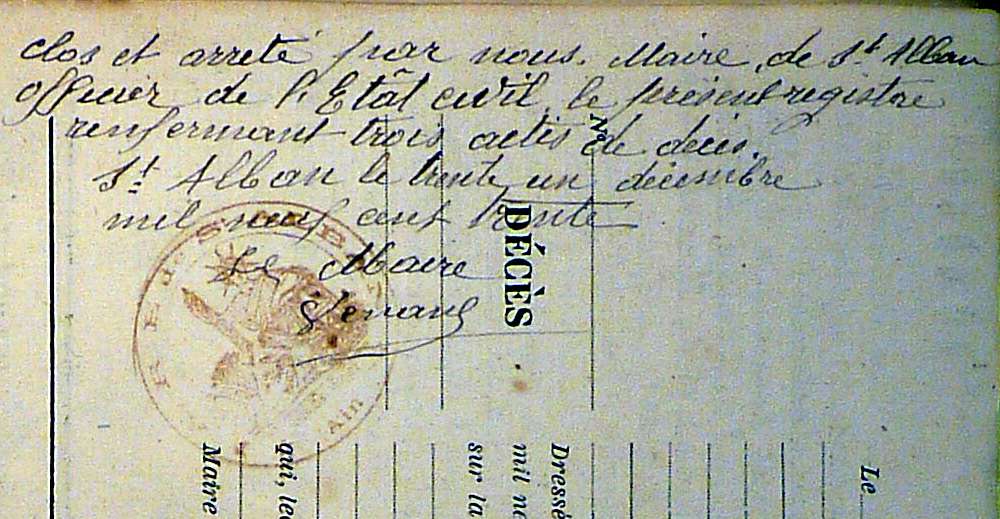 clos et arreté par nous. Maire, de St Alban
officier de l'Etât civil, le présent registre
renfermant trois actes de décès.
St Alban le trente un décembre
mil neuf cent trente
Le Maire
No
DÉCÈS
Ain
Le
Dressé
mil ne
sur la
qui, lec
Maire